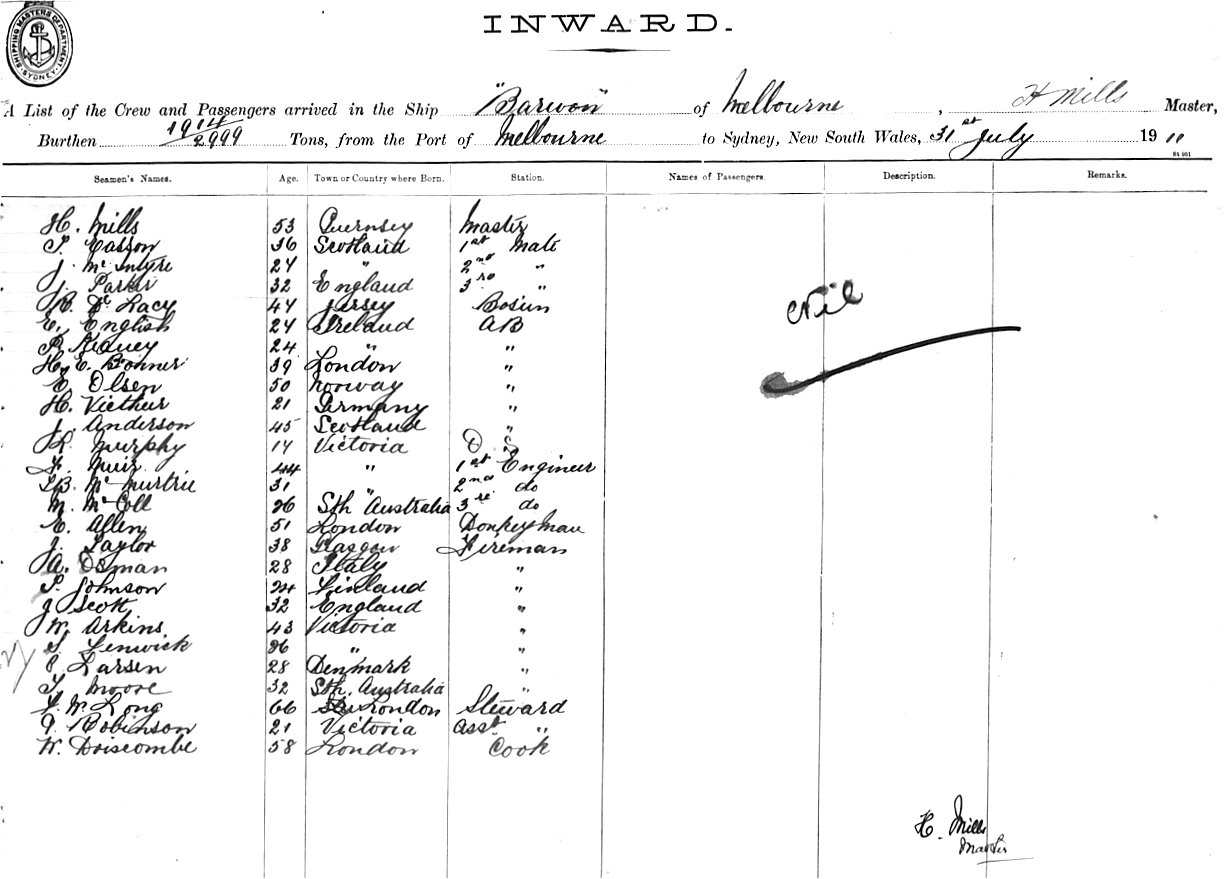 SHIPPING MASTERS DEPARTMENT. SYDNEY.
INWARD.
A List of the Crew and Passengers arrived in the Ship "Barwon" of Melbourne, H Mills Master,
Burthen 1914/2999 Tons, from the Port of Melbourne to Sydney, New South Wales, 31st July 1911
Seamen's Names. Age. Town or Country where Born. Station. Names of Passengers. Description. Remarks.
H. Mills 53 Guernsey Master
T. Easson 36 Scotland 1st Mate
J. McIntyre 24 " 2nd "
J. Parker 32 England 3rd "
R. De Lacy 44 Jersey Bosun
E. English 24 Ireland AB
P. Kidney 24 " "
H. E. Bonner 39 London "
E. Olsen 50 Norway "
H. Viether 21 Germany "
J. Anderson 45 Scotland "
R. Murphy 17 Victoria O S
F. Muir 44 " 1st Engineer
McMurtrie 31 " 2nd do
M. McColl 26 Sth Australia 3rd do
E. Allen 51 London Donkeyman
J. Taylor 38 Glasgow Fireman
A. Osman 28 Italy "
Johnson 24 Finland "
J Scott 32 England "
W. Arkins 43 Victoria "
S. Fenwick 26 " "
Larsen 28 Denmark "
T. Moore 32 Sth. Australia "
F. W. Long 66 London Steward
Robinson 21 Victoria Asst. "
W. Driscombe 58 London Cook
Nil
H. Mills
Master